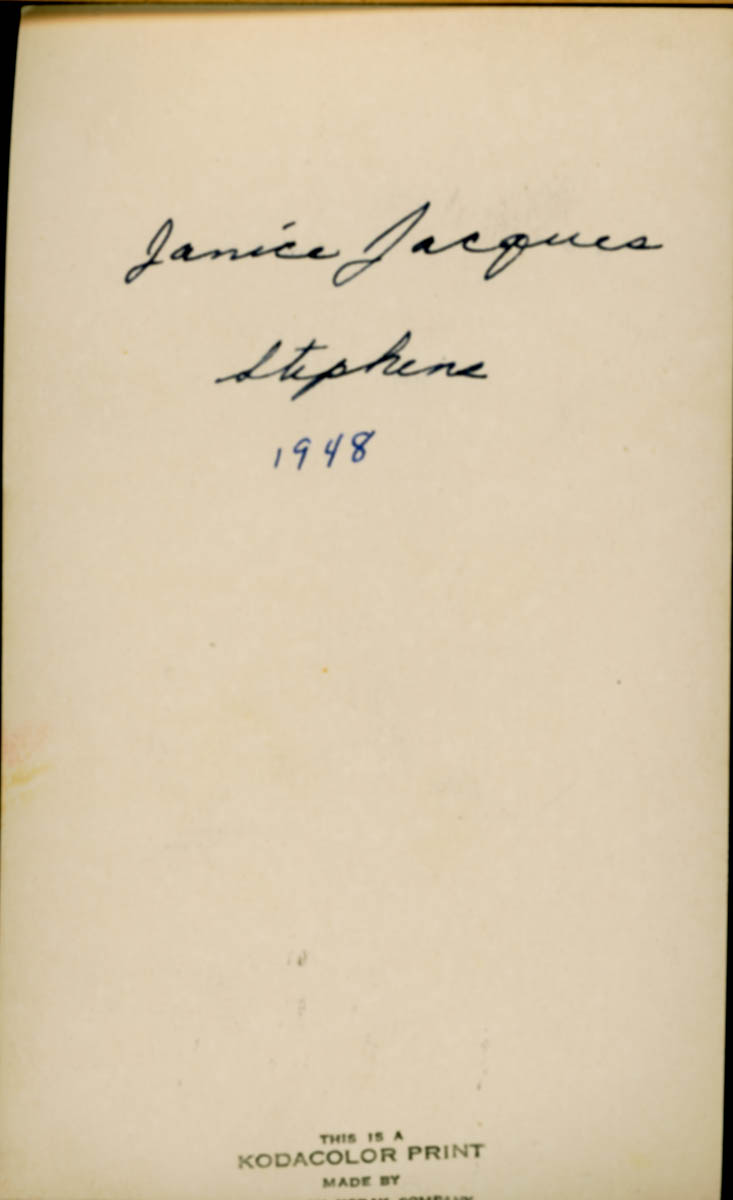 Janice Jacques
Stephens
1948
THIS IS A
KODACOLOR PRINT
MADE BY
KODAK COMPANY